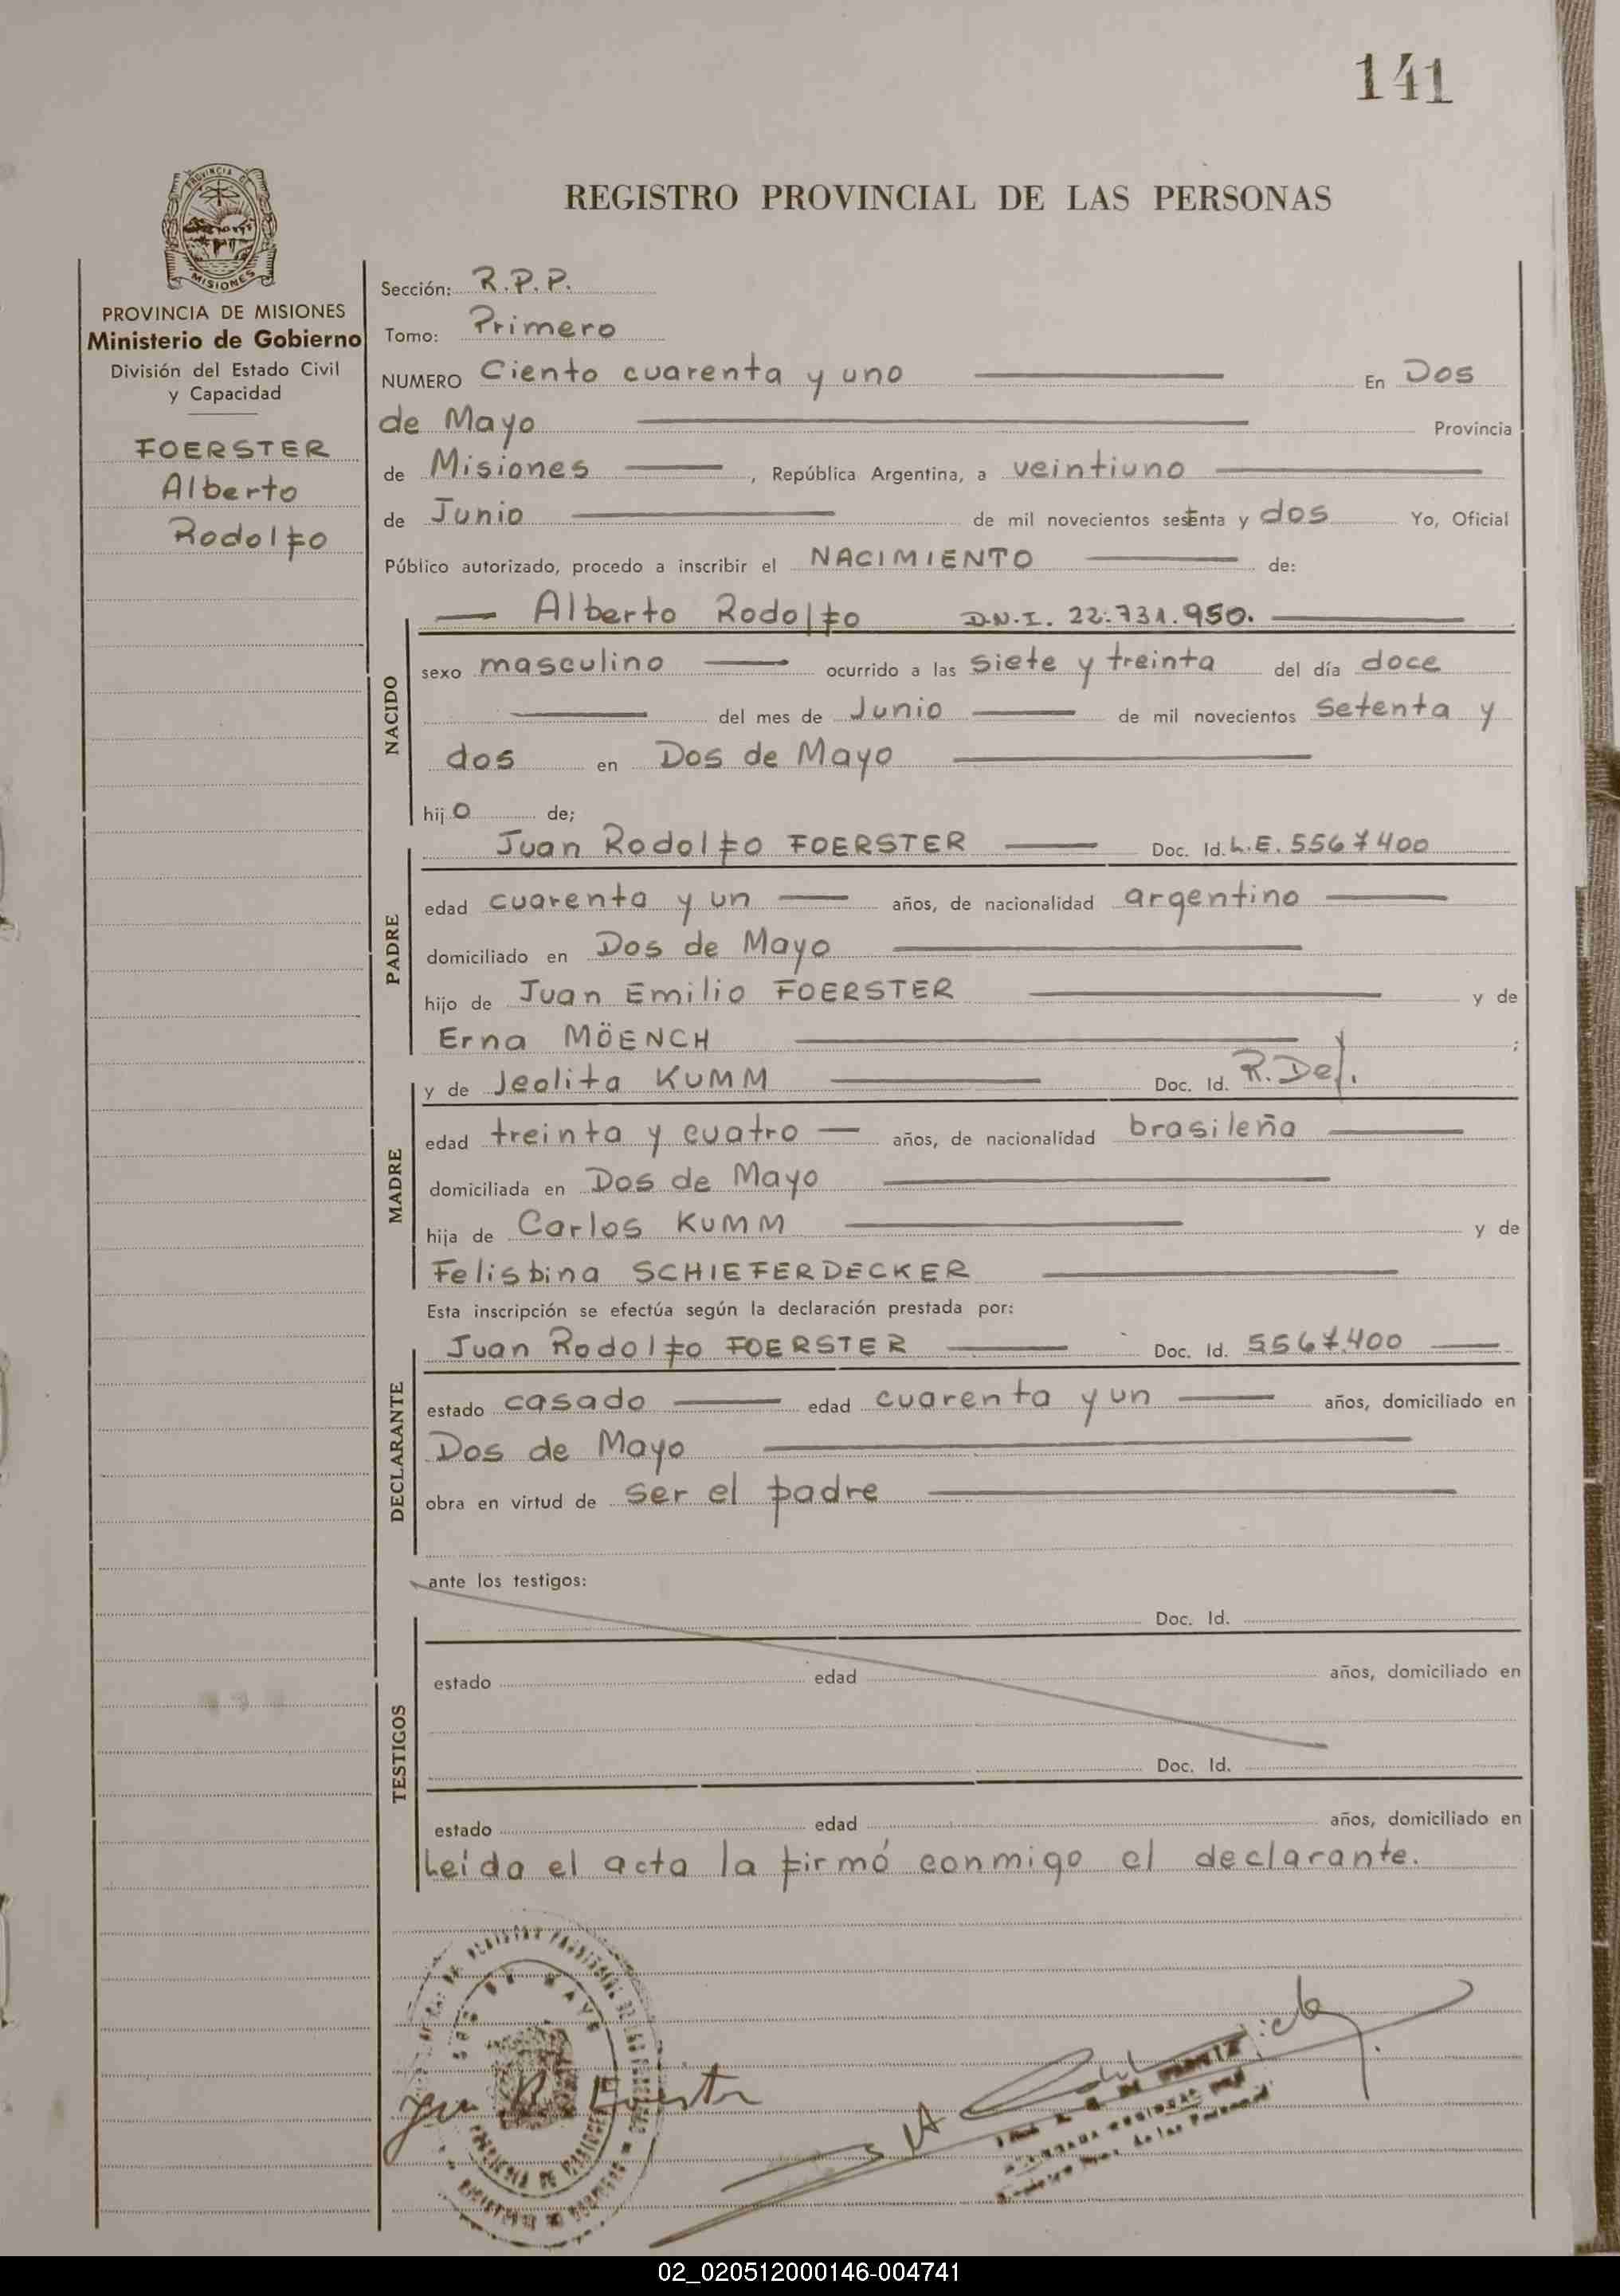 141
PROVINCIA DE
MISIONES
REGISTRO PROVINCIAL DE LAS PERSONAS
PROVINCIA DE MISIONES
Ministerio de Gobierno
División del Estado Civil
y Capacidad
FOERSTER
Alberto
Rodolfo
Sección: R.P.P.
Tomo: Primero
NUMERO Ciento cuarenta y uno En Dos
de Mayo Provincia
de Misiones, República Argentina, a veintiuno
de Junio de mil novecientos setenta y dos Yo, Oficial
Público autorizado, procedo a inscribir el NACIMIENTO de:
NACIDO
Alberto Rodolfo D.N.I. 22.731.950.
sexo masculino ocurrido a las siete y treinta del día doce
del mes de Junio de mil novecientos setenta y
dos en Dos de Mayo
hijo de;
PADRE
Juan Rodolfo FOERSTER Doc. Id. L.E. 5567400
edad cuarenta y un años, de nacionalidad argentino
domiciliado en Dos de Mayo
hijo de Juan Emilio FOERSTER y de
Erna MÖENCH ;
MADRE
y de Jeolita KUMM Doc. Id. R.Def.
edad treinta y cuatro años, de nacionalidad brasileña
domiciliada en Dos de Mayo
hija de Carlos KUMM y de
Felisbina SCHIEFERDECKER
Esta inscripción se efectúa según la declaración prestada por:
DECLARANTE
Juan Rodolfo FOERSTER Doc. Id. 5567400
estado casado edad cuarenta y un años, domiciliado en
Dos de Mayo
obra en virtud de ser el padre
ante los testigos:
TESTIGOS
Doc. Id.
estado edad años, domiciliado en
Doc. Id.
estado edad años, domiciliado en
Leída el acta la firmó conmigo el declarante.
02_020512000146-004741